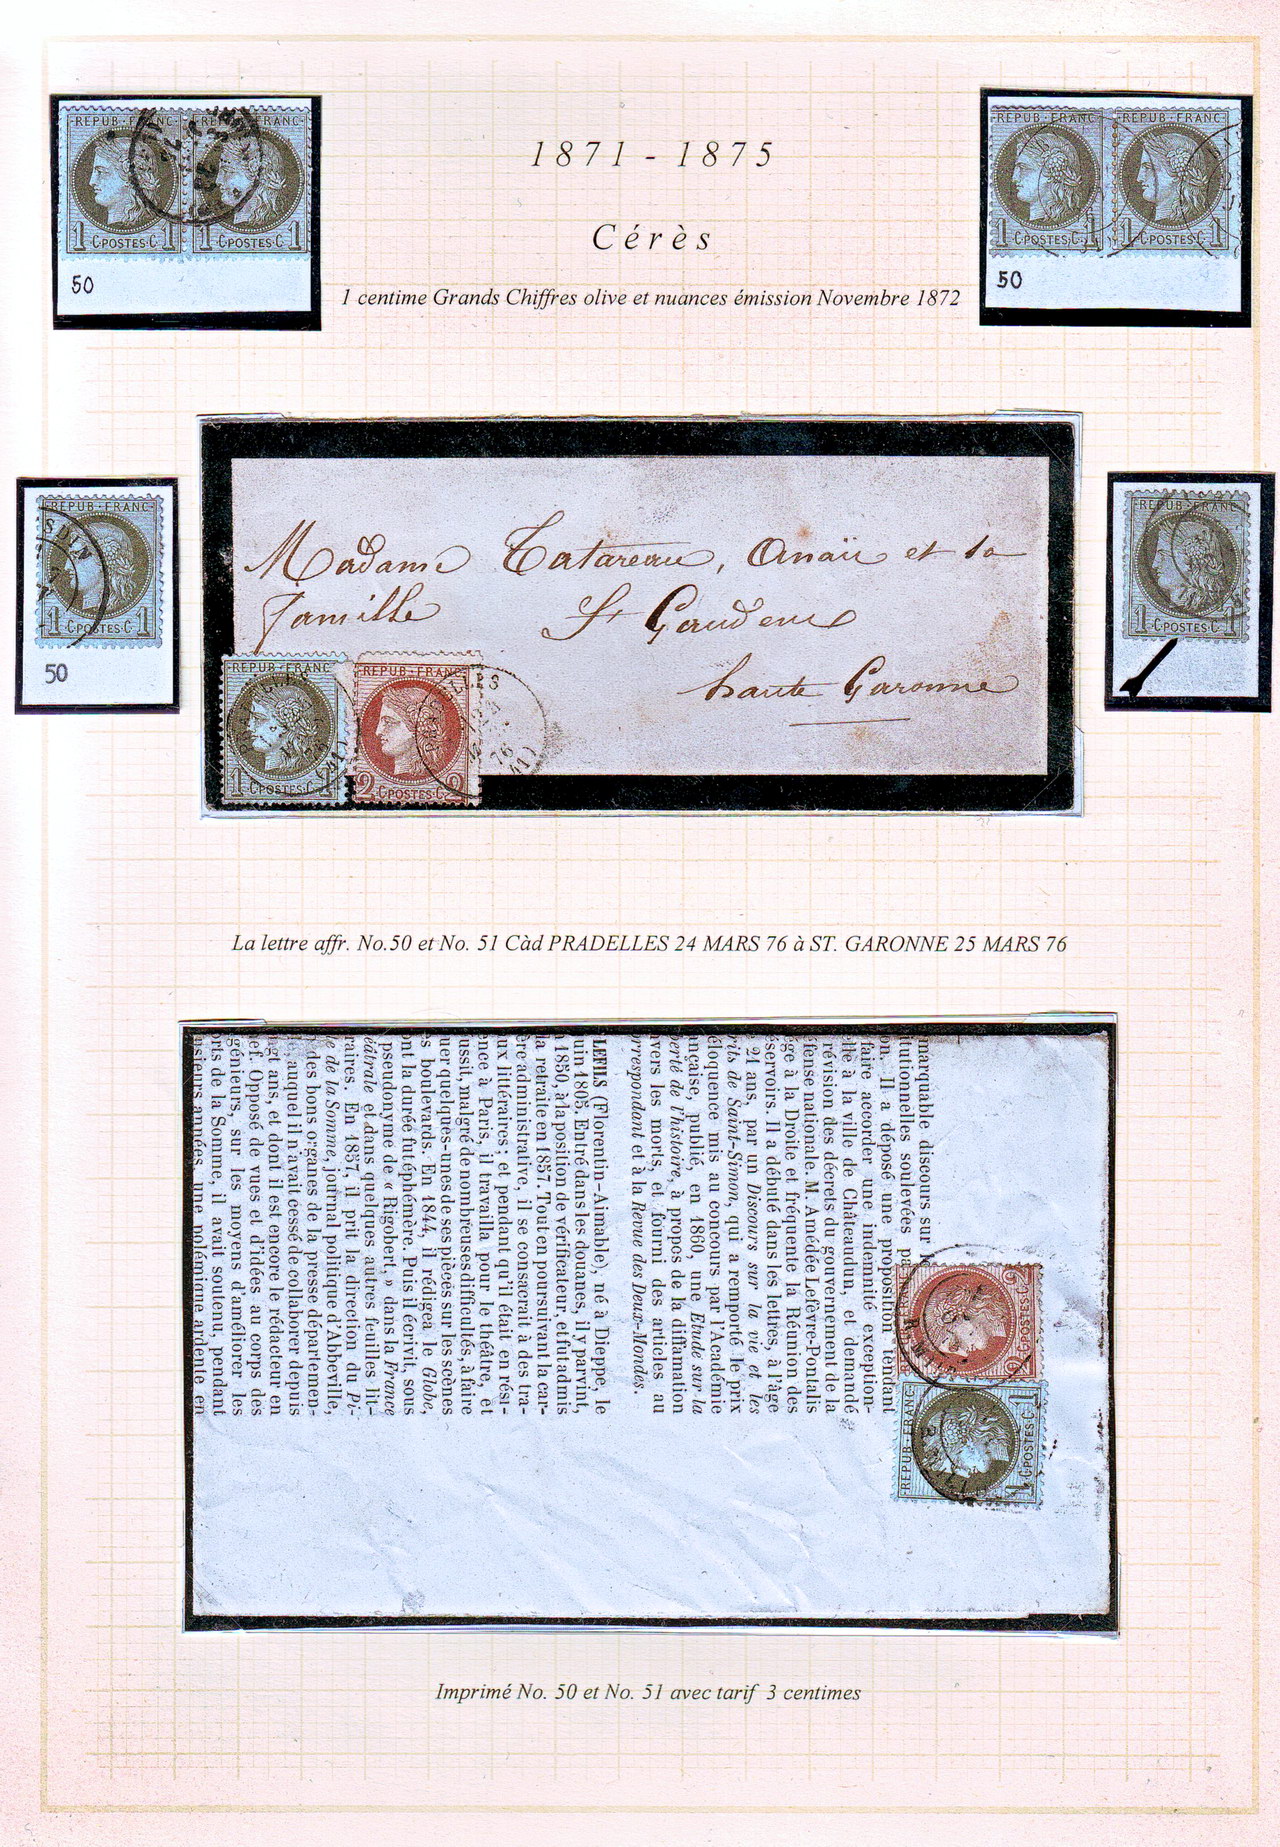 1871 - 1875
Cérès
1 centime Grands Chiffres olive et nuances émission Novembre 1872
REPUB·FRANC
REPUB·FRANC
1 C·POSTES·C 1
1 C·POSTES·C 1
50
REPUB·FRANC
REPUB·FRANC
1 C·POSTES·C 1
1 C·POSTES·C 1
50
REPUB·FRANC
SDIN
1 C·POSTES·C 1
50
REPUB·FRANC
1 C·POSTES·C 1
Madame Tatareau, Anaïs et sa
famille St Gaudens
haute Garonne
REPUB·FRANC
REPUB·FRANC
1 C·POSTES·C 1
2 C·POSTES·C 2
76
(41)
La lettre affr. No.50 et No. 51 Càd PRADELLES 24 MARS 76 à ST. GARONNE 25 MARS 76
marquable discours sur l
itutionnelles soulevées pa
on. Il a déposé une proposition tendant
faire accorder une indemnité exception-
lle à la ville de Châteaudun, et demandé
révision des décrets du gouvernement de la
éfense nationale. M. Amédée Lefèvre-Pontalis
ége à la Droite et fréquente la Réunion des
éservoirs. Il a débuté dans les lettres, à l'âge
21 ans, par un Discours sur la vie et les
rits de Saint-Simon, qui a remporté le prix
éloquence mis au concours par l'Académie
ançaise, publié, en 1860, une Etude sur la
perté de l'histoire, à propos de la diffamation
nvers les morts, et fourni des articles au
orrespondant et à la Revue des Deux-Mondes.
LEFILS (Florentin-Aimable), né à Dieppe, le
uin 1805. Entré dans les douanes, il y parvint,
1850, à la position de vérificateur, et fut admis
la retraite en 1857. Tout en poursuivant la car-
ère administrative, il se consacrait à des tra-
ux littéraires; et pendant qu'il était en rési-
ence à Paris, il travailla pour le théâtre, et
ussit, malgré de nombreuses difficultés, à faire
uer quelques-unes de ses pièces sur les scènes
es boulevards. En 1844, il rédigea le Globe,
ont la durée fut éphémère. Puis il écrivit, sous
pseudonyme de « Rigobert, » dans la France
éâtrale et dans quelques autres feuilles lit-
raires. En 1857, il prit la direction du Pi-
e de la Somme, journal politique d'Abbeville,
des bons organes de la presse départemen-
, auquel il n'avait cessé de collaborer depuis
ngt ans, et dont il est encore le rédacteur en
ef. Opposé de vues et d'idées au corps des
génieurs, sur les moyens d'améliorer les
orts de la Somme, il avait soutenu, pendant
usieurs années, une polémique ardente en
2 C·POSTES·C 2
REPUB·FRANC
1 C·POSTES·C 1
Imprimé No. 50 et No. 51 avec tarif 3 centimes